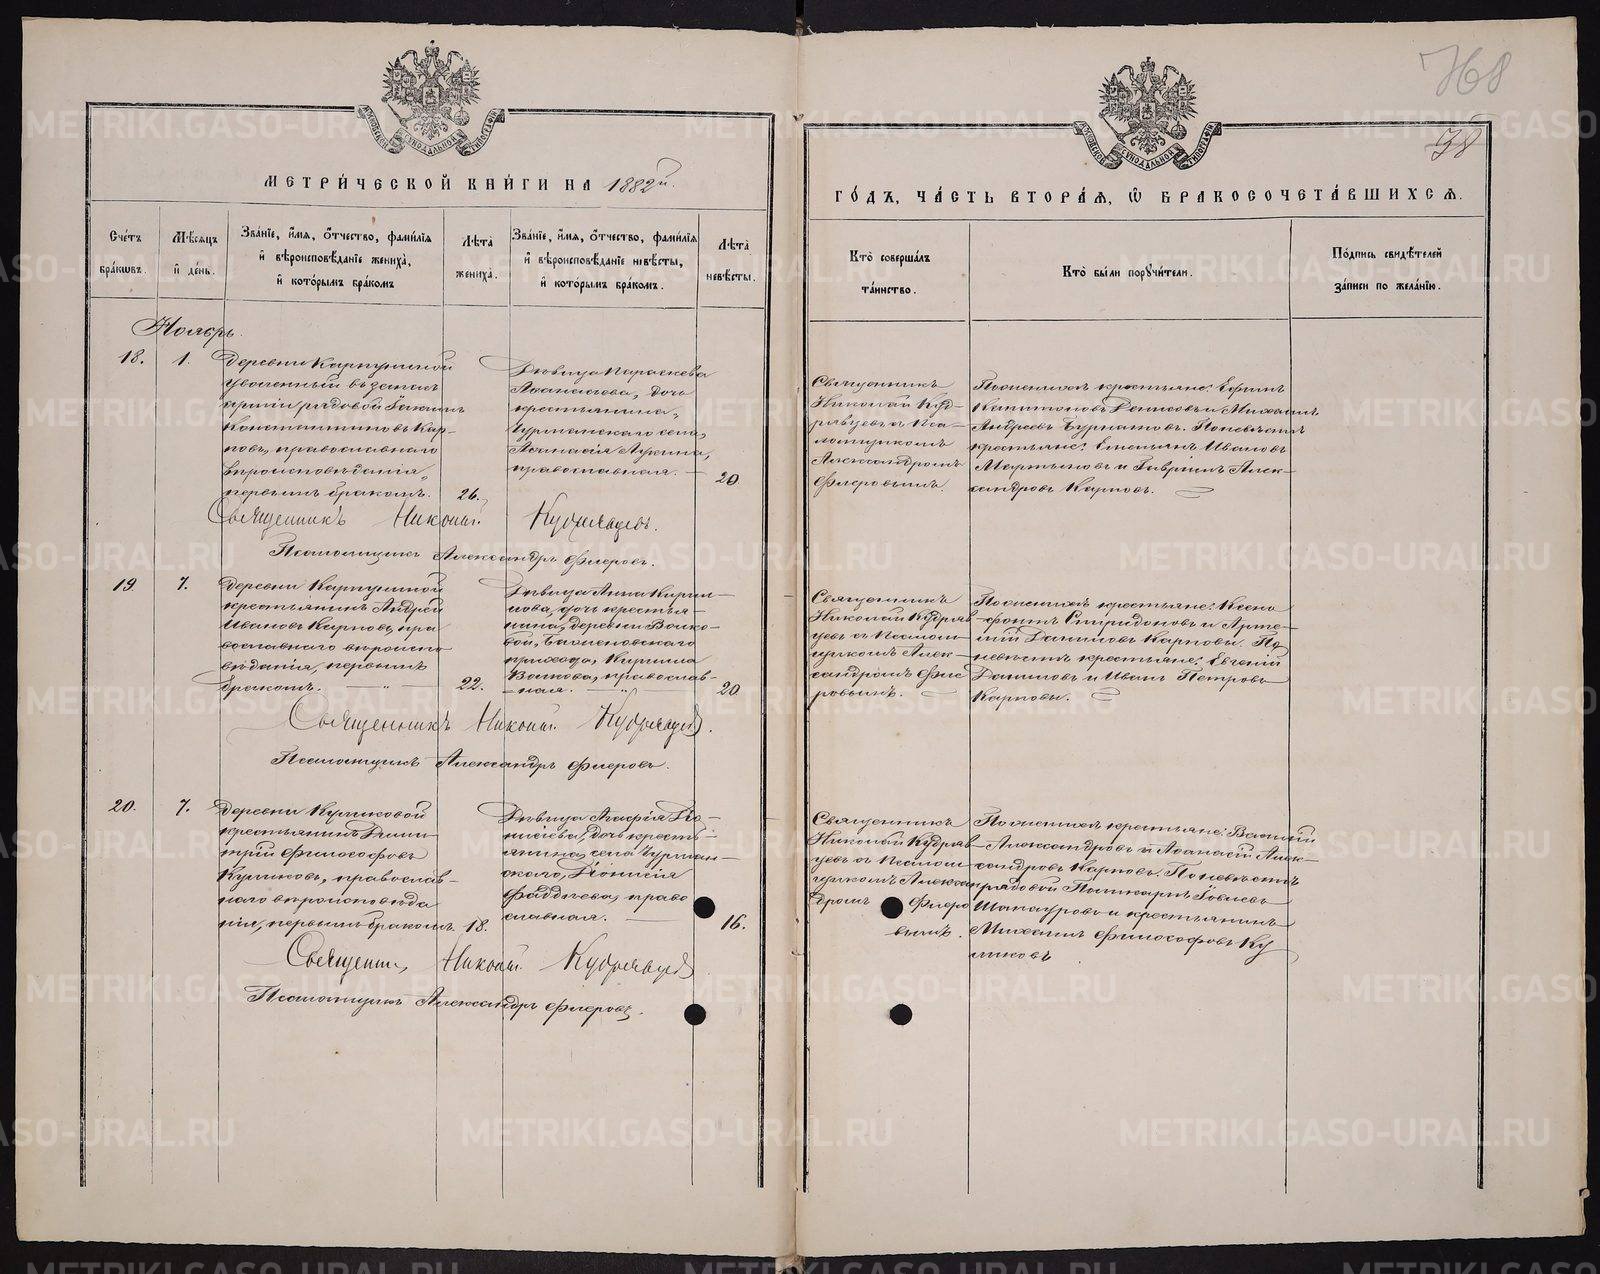 768
38
МОСКОВСКОЙ СѴНОДАЛЬНОЙ ТИПОГРАФІИ
МОСКОВСКОЙ СѴНОДАЛЬНОЙ ТИПОГРАФІИ
МЕТРИ́ЧЕСКОЙ КНИ́ГИ НА 1882й.
ГО́ДЪ, ЧА́СТЬ ВТОРА́Ѧ, Ѽ БРАКОСОЧЕТА́ВШИХСѦ.
Сче́тъ бра́кѡвъ.
Мѣ́сѧцъ и҆ де́нь.
Зва́нїе, и҆́мѧ, ѻ҆́тчество, фами́лїѧ и҆ вѣроисповѣ́данїе жениха̀, и҆ кото́рымъ бра́комъ
Лѣ́та жениха̀.
Зва́нїе, и҆́мѧ, ѻ҆́тчество, фами́лїѧ и҆ вѣроисповѣ́данїе невѣ́сты, и҆ кото́рымъ бра́комъ.
Лѣ́та невѣ́сты.
Кто̀ соверша́лъ та́инство.
Кто̀ бы́ли порꙋчи́тели.
По́дпись свидѣ́телей за́писи по жела́нїю.
Ноябрь.
18.
1.
Деревни Карпушиной
уволенный въ запас
арміи рядовой
Константиновъ Кар-
повъ, православнаго
вѣроисповѣданія,
первымъ бракомъ.
26.
Дѣвица Параскева
Аѳанасьева, дочь
крестьянина,
Чурманскаго села,
Аѳанасія Лукина,
православная.
20.
Священникъ
Николай Куд-
рявцевъ с Пса-
ломщикомъ
Александромъ
Флеровымъ.
По женихѣ крестьяне: Ефимъ
Капитоновъ Денисовъ и Михаилъ
Андреевъ Бурматовъ. По невѣстѣ
крестьяне: Емельянъ Ивановъ
Мартьяновъ и Гавріилъ Алек-
сандровъ Карповъ.
Священникъ Николай Кудрявцевъ.
Псаломщикъ Александръ Флеровъ.
19.
7.
Деревни Карпушиной
крестьянинъ Андрей
Ивановъ Карповъ, пра
вославнаго вѣроиспо-
вѣданія, первымъ
бракомъ.
22.
Дѣвица Анна Кирил-
лова, дочь крестья-
нина, деревни Волко-
вой,
прихода, Кирилла
Волкова, православ-
ная.
20.
Священникъ
Николай Кудряв-
цевъ с Псалом-
щикомъ Алек-
сандромъ Фле
ровымъ.
По женихѣ крестьяне: Ксено
фонтъ Спиридоновъ и Арте-
мій Даниловъ Карповы. По
невѣстѣ крестьяне: Евгеній
Даниловъ и Иванъ Петровъ
Карповы.
Священникъ Николай Кудрявцевъ.
Псаломщикъ Александръ Флеровъ.
20.
7.
Деревни Куликовой
крестьянинъ Дими-
трій Философовъ
Куликовъ, православ-
наго вѣроисповѣда
нія, первымъ бракомъ.
18.
Дѣвица Агафія Діо-
нисіева, дочь кресть-
янина, села Чурман-
скаго, Діонисія
Фаддѣева, право
славная.
16.
Священникъ
Николай Кудряв-
цевъ с Псалом-
щикомъ Алексан
дромъ Флеро
вымъ.
По женихѣ крестьяне: Василій
Александровъ и Аѳанасій Алек-
сандровъ Карповы. По невѣстѣ
рядовой Поликарпъ
и крестьянинъ
Михаилъ Философовъ Ку
ликовъ
Священникъ Николай Кудрявцевъ
Псаломщикъ Александръ Флеровъ.
METRIKI.GASO-URAL.RU